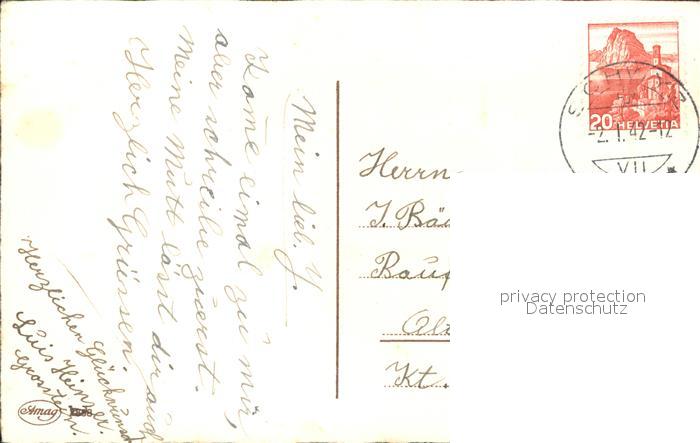 Mein lieb. Y.
Kome eimal zu mir,
aber schreibe zuerst.
Meine Mutt lässt dir auch
Herzlich Grüssen.
Herzlichen Glückwunsch
Luis Heinzer.
Amag
Herrn
J. Bä
Bau
Kt.
20 HELVETIA
SCHWYZ
-2.1.42-12
VII
privacy protection
Datenschutz